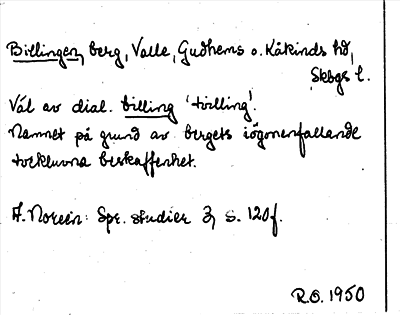 Billingen, berg, Valle, Gudhems o. Kåkinds hd,
Skbgs l.
Väl av dial. billing 'tvilling'.
Namnet på grund av bergets iögonenfallande
tvekluvna beskaffenhet.
A. Noreen: Spr. studier 3, s. 120 f.
R.O. 1950